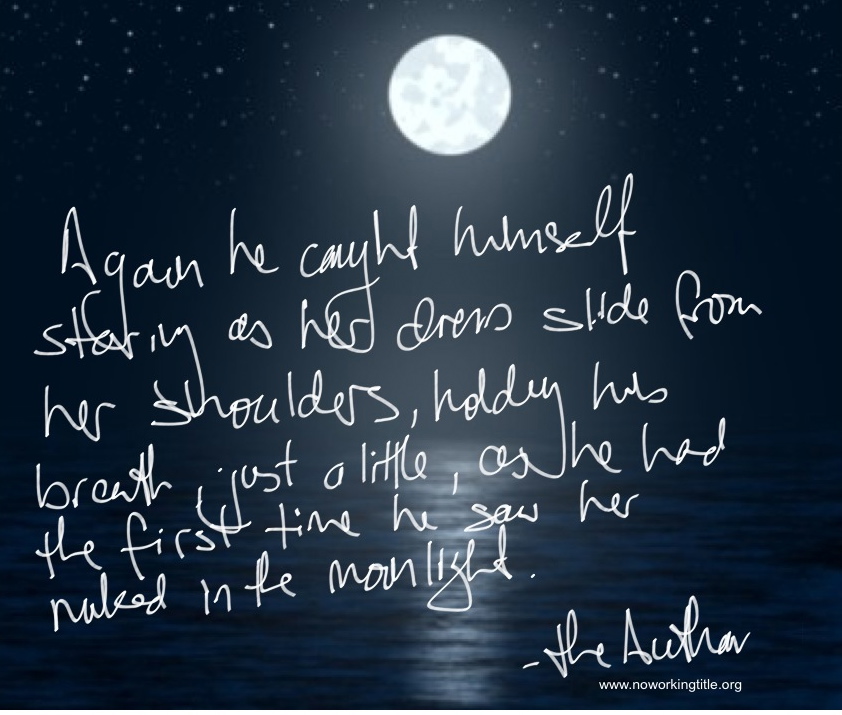 Again he caught himself
staring as her dress slide from
her shoulders, holding his
breath, just a little, as he had
the first time he saw her
naked in the moonlight.
-the Author
www.noworkingtitle.org